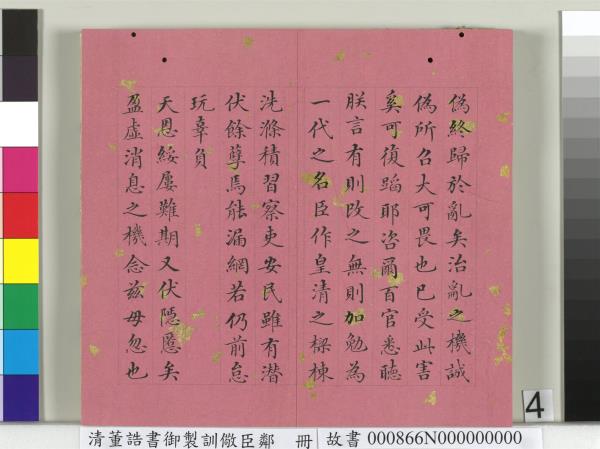 偽終歸於亂矣治亂之機誠
偽所召大可畏也已受此害
奚可復蹈耶咨爾百官悉聽
朕言有則改之無則加勉為
一代之名臣作皇清之樑棟
洗滌積習察吏安民雖有潛
伏餘孽焉能漏網若仍前怠
玩辜負
天恩綏屢難期又伏隱慝矣
盈虛消息之機念茲毋忽也
4
清董誥書御製訓儆臣鄰 冊
故書 000866N000000000